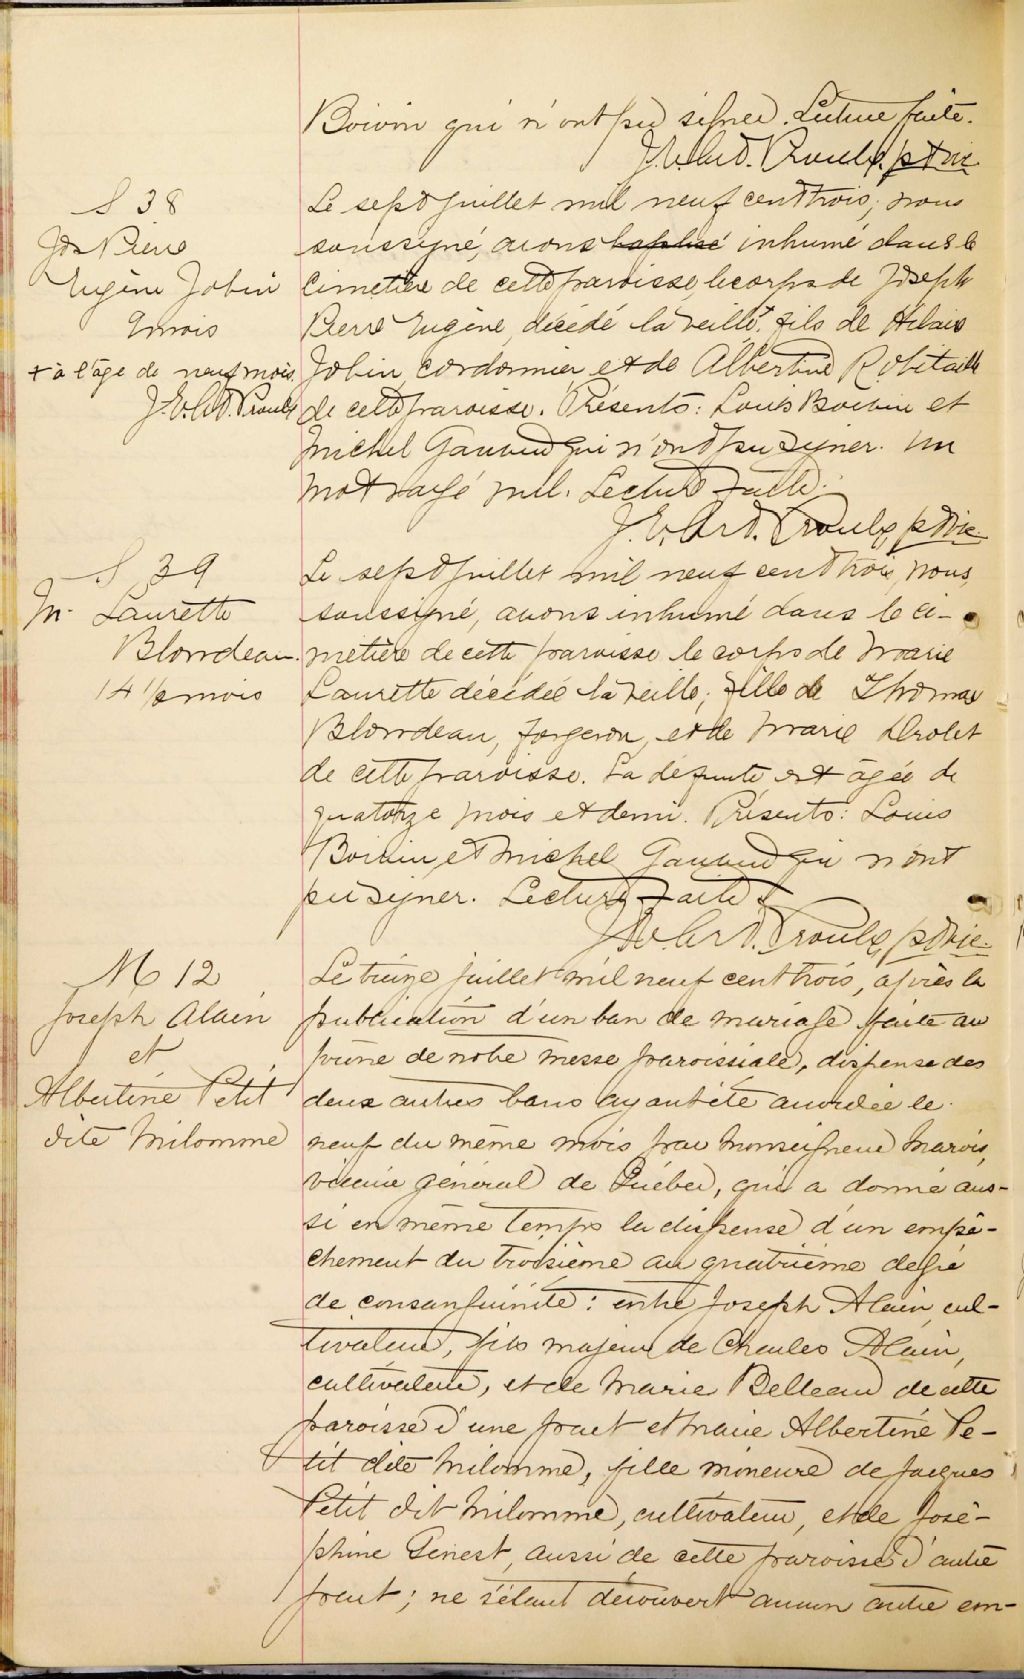 Boivin qui n'ont pu signer. Lecture faite.
J. E. Art. Proulx ptre vic
S 38
Jos Pierre
Eugène Jobin
9 mois
+ à l'âge de neuf mois.
J. E. Art. Proulx
Le sept juillet mil neuf cent trois, nous
soussigné, avons baptisé inhumé dans le
cimetière de cette paroisse, le corps de Joseph
Pierre Eugène, décédé la veille,+ fils de Hilaire
Jobin, cordonnier, et de Albertine Robitaille
de cette paroisse. Présents: Louis Boivin et
Michel Gauvin qui n'ont pu signer. Un
mot rayé nul. Lecture faite.
J. E. Art. Proulx ptre vic
S 39
M. Laurette
Blondeau.
14 1/2 mois
Le sept juillet mil neuf cent trois, nous,
soussigné, avons inhumé dans le ci-
metière de cette paroisse le corps de Marie
Laurette décédée la veille, fille de Thomas
Blondeau, forgeron, et de Marie Drolet
de cette paroisse. La défunte est âgée de
quatorze mois et demi. Présents: Louis
Boivin et Michel Gauvin qui n'ont
pu signer. Lecture faite
J. E. Art. Proulx, ptre vic.
M 12
Joseph Alain
et
Albertine Petit
dite Milomme
Le treize juillet mil neuf cent trois, après la
publication d'un ban de mariage faite au
prône de notre messe paroissiale, dispense des
deux autres bans ayant été accordée le
neuf du même mois par Monseigneur Marois,
vicaire général de Québec, qui a donné aus-
si en même temps la dispense d'un empê-
chement du troisième au quatrième degré
de consanguinité: entre Joseph Alain, cul-
tivateur, fils majeur de Charles Alain,
cultivateur, et de Marie Belleau de cette
paroisse d'une part et Marie Albertine Pe-
tit dite Milomme, fille mineure de Jacques
Petit dit Milomme, cultivateur, et de José-
phine Genest, aussi de cette paroisse d'autre
part; ne s'étant découvert aucun autre em-